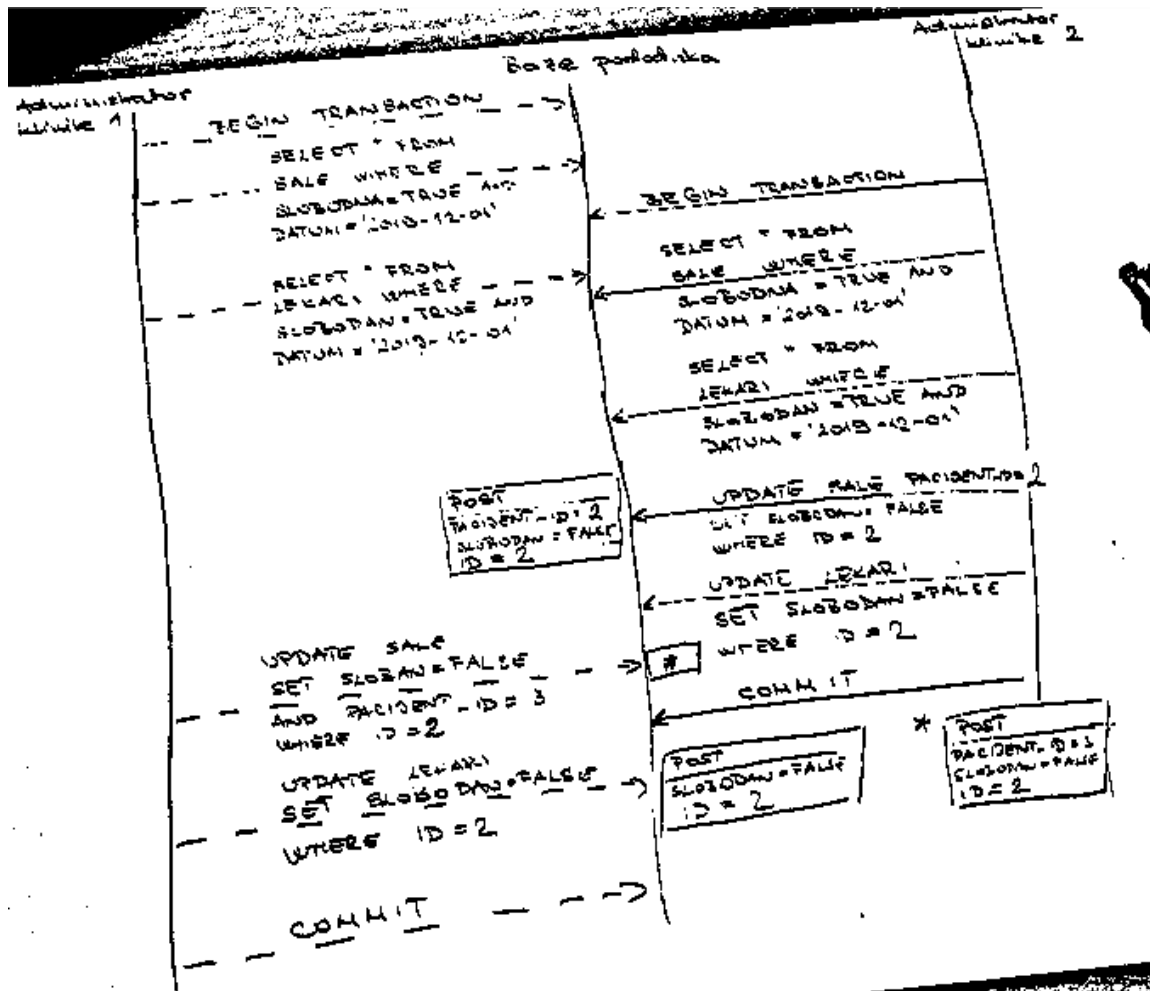 Administrator
klinike 1
Baza podataka
Administrator
klinike 2
BEGIN TRANSACTION
SELECT * FROM
SALE WHERE
SLOBODNA=TRUE AND
DATUM='2019-12-01'
SELECT * FROM
LEKARI WHERE
SLOBODAN=TRUE AND
DATUM='2019-12-01'
BEGIN TRANSACTION
SELECT * FROM
SALE WHERE
SLOBODNA = TRUE AND
DATUM = '2019-12-01'
SELECT * FROM
LEKARI WHERE
SLOBODAN = TRUE AND
DATUM = '2019-12-01'
UPDATE SALE PACIDENT_ID=2
SET SLOBODAN=FALSE
WHERE ID = 2
POST
PACIDENT_ID=2
SLOBODAN=FALSE
ID = 2
UPDATE LEKARI
SET SLOBODAN=FALSE
WHERE ID = 2
UPDATE SALE
SET SLOBAN=FALSE
AND PACIDENT_ID = 3
WHERE ID = 2
*
COMMIT
UPDATE LEKARI
SET SLOBODAN=FALSE
WHERE ID = 2
POST
SLOBODAN=FALSE
ID = 2
* POST
PACIDENT_ID=3
SLOBODAN=FALSE
ID = 2
COMMIT